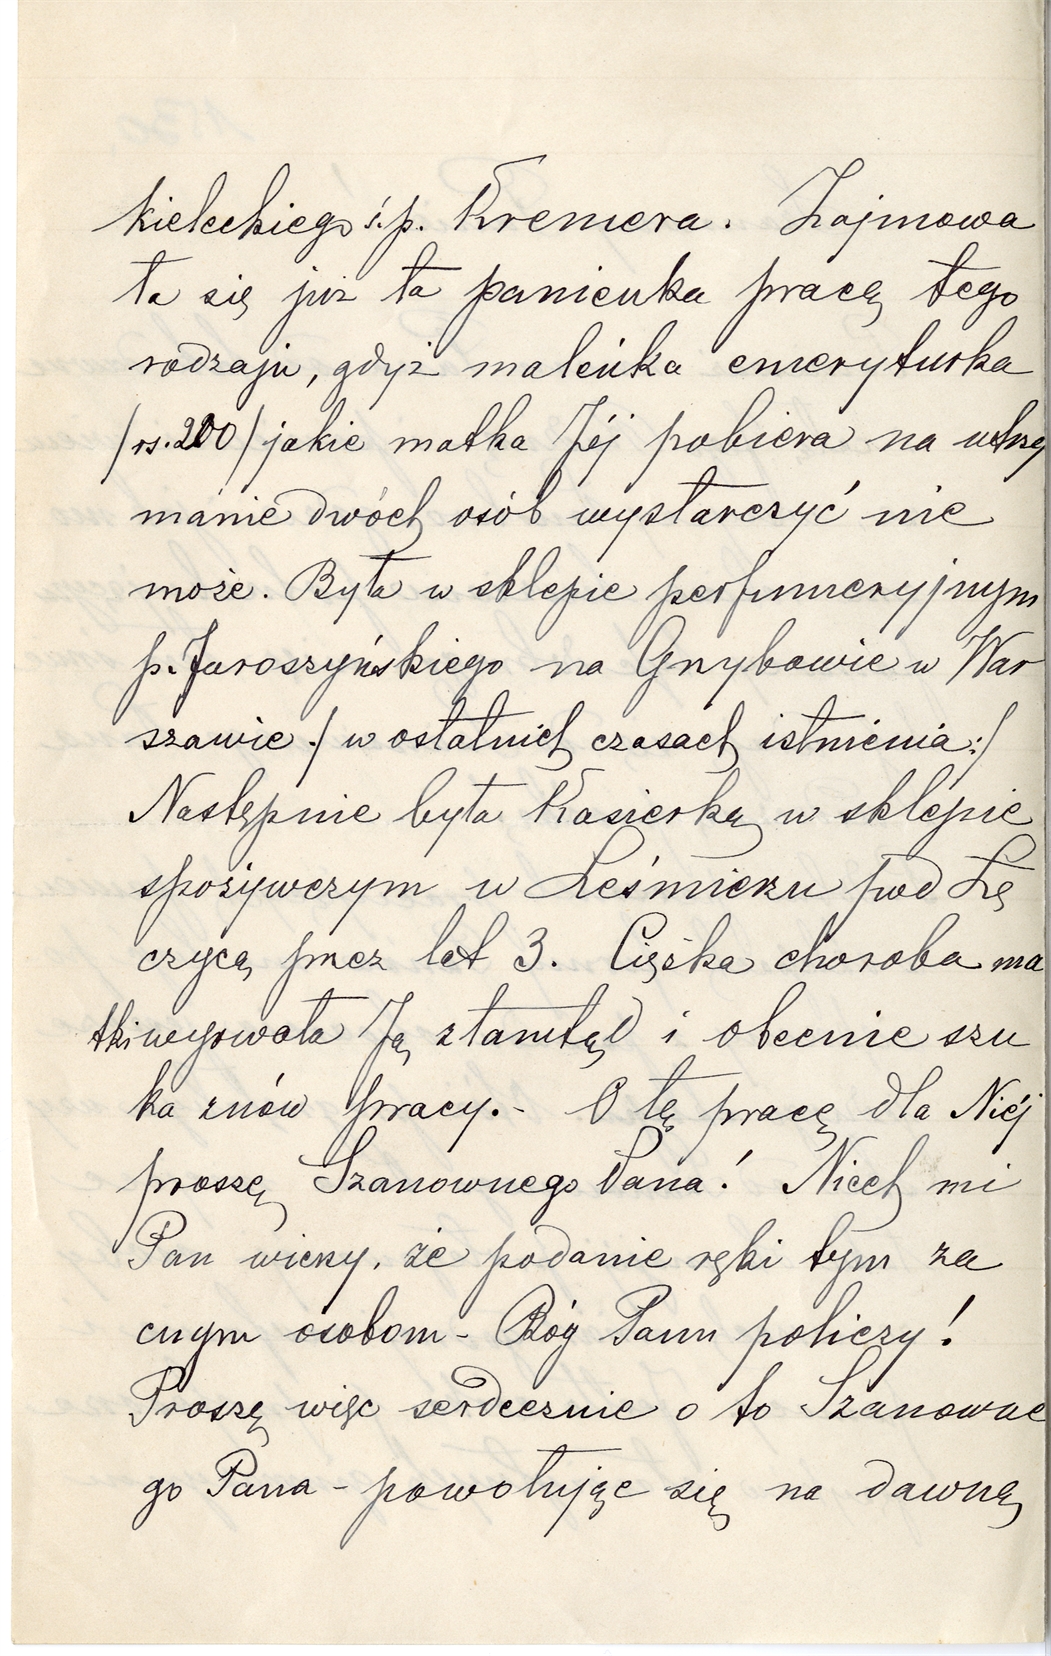 kieleckiego ś.p. Kremera. Zajmowa
ła się już ta panienka pracą tego
rodzaju, gdyż maleńka emeryturka
/rs. 200/ jakie matka Jéj pobiera na utrzy
manie dwóch osób wystarczyć nie
może. Była w sklepie perfumeryjnym
p. Jaroszyńskiego na Grzybowie w War
szawie :/ w ostatnich czasach istnienia :/
Następnie była Kasierką w sklepie
spożywczym w Leśmierzu pod Łę
czycą przez lat 3. Ciężka choroba ma
tki wyrwała Ją ztamtąd i obecnie szu
ka znów pracy. - O tę pracę dla Niéj
proszę Szanownego Pana! Niech mi
Pan wierzy, że podanie ręki tym za
cnym osobom - Bóg Panu policzy!
Proszę więc serdecznie o to Szanowne
go Pana - powołując się na dawną